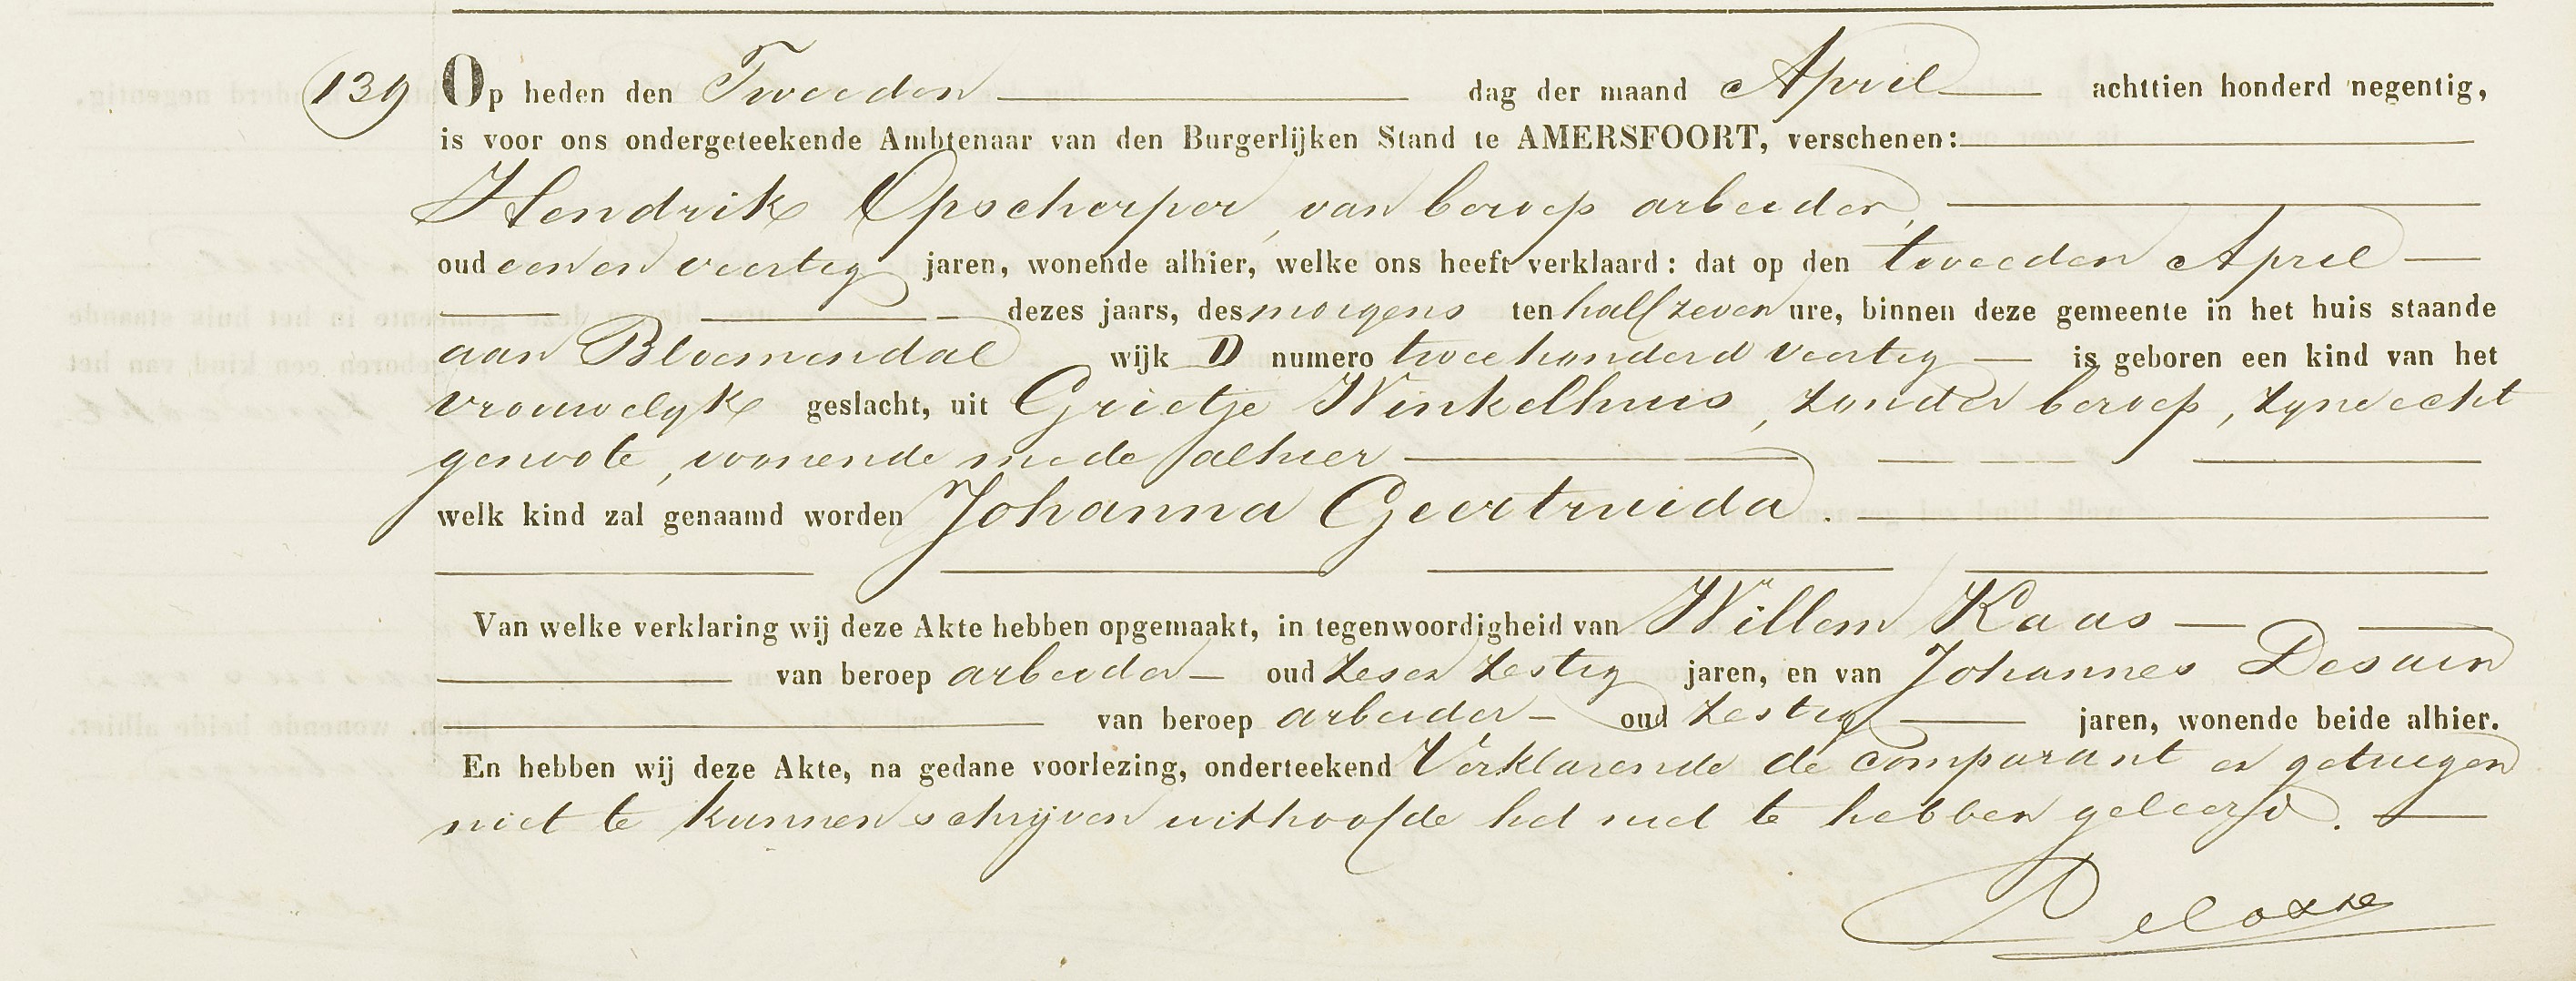 139 Op heden den Tweeden dag der maand April achttien honderd negentig,
is voor ons ondergeteekende Ambtenaar van den Burgerlijken Stand te AMERSFOORT, verschenen:
Hendrik Opscherper, van beroep arbeider,
oud een en veertig jaren, wonende alhier, welke ons heeft verklaard: dat op den tweeden April
dezes jaars, des morgens ten half zeven ure, binnen deze gemeente in het huis staande
aan Bloemendal wijk D numero twee honderd veertig is geboren een kind van het
vrouwelyk geslacht, uit Grietje Winkelhuis, zonder beroep, zyne echt
genoote, wonende mede alhier
welk kind zal genaamd worden Johanna Geertruida.
Van welke verklaring wij deze Akte hebben opgemaakt, in tegenwoordigheid van Willem Kaas
van beroep arbeider oud zes en zestig jaren, en van Johannes Desain
van beroep arbeider oud zestig jaren, wonende beide alhier.
En hebben wij deze Akte, na gedane voorlezing, onderteekend Verklarende de comparant en getuigen
niet te kunnen schrijven uithoofde het niet te hebben geleerd.